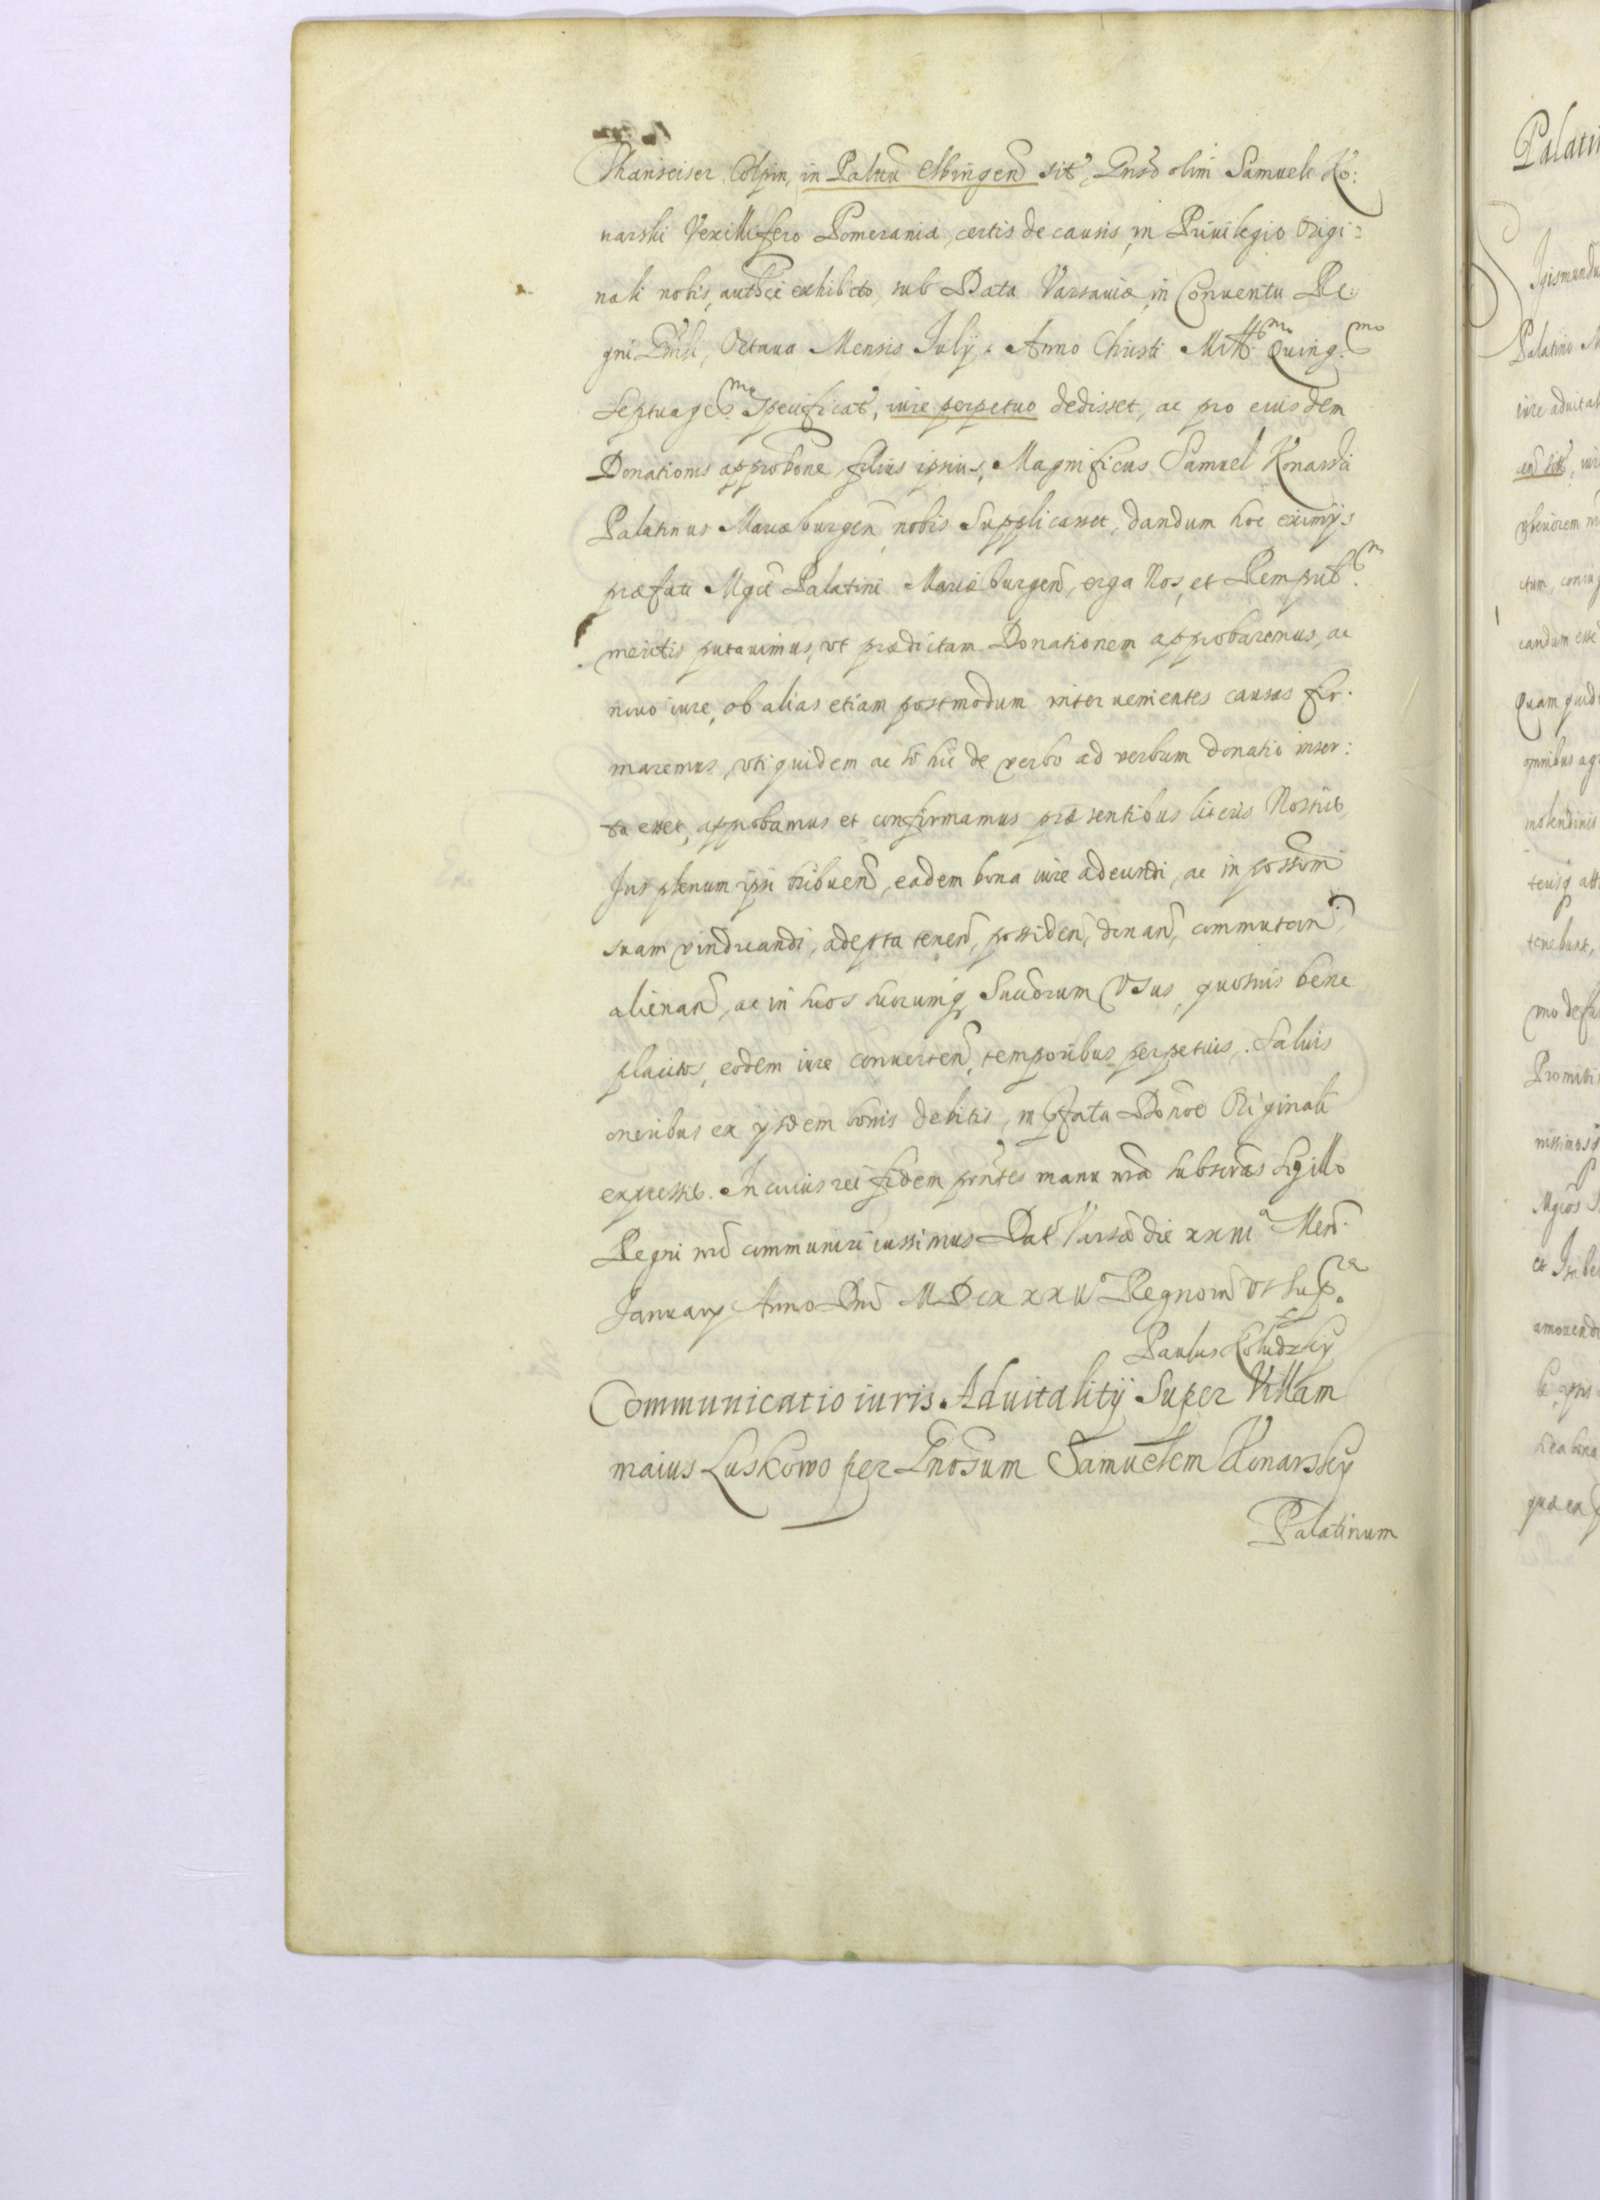 Thanseiser Colpin, in Palttu Elbingen sit, Gnso olim Samueli Ko:
narski Vexillifero Pomeraniæ, certis de causis, in Priuilegio Origi:
nali nobis, authce exhibito, sub Data Varsauiæ, in Conuentu Re
gni Gnrli, Octaua Mensis July. Anno Christi Millmo Quingmo
Septuagesmo specificat, iure perpetuo dedisset, ac pro eiusdem
Donationis approbone, filius ipsius, Magnificus Samuel Konarski
Palatinus Mariæburgen nobis Supplicasset, dandum hoc eximys
præfati Mgci Palatini Mariæburgen, erga Nos, et Rempubm
meritis putauimus, vt prædictam Donationem approbaremus, ac
nouo iure, ob alias etiam postmodum interuenientes causas fir.
maremus, vti quidem ac si hic de verbo ad verbum donatio inser:
ta esset, approbamus et confirmamus præsentibus literis Nostris,
Jus plenum ipsi tribuen, eadem bona iure adeundi, ac in possom
suam vindicandi, adepta tenen, possiden, donan, commutan,
alienan, ac in suos suorumq Succrum Vsus, quosuis bene
placitos, eodem iure conuerten, temporibus perpetuis. Saluis
oneribus ex ijsdem bonis debitis, in pfata Donoe Originali
expressis. In cuius rei fidem pntes manu nra subscras Sigillo
Regni nro communiri iussimus Dat Varsæ die xxiii Men.
January Anno Dni MDCXXXII Regnom vt supra
Paulus Koludzky
Communicatio iuris Aduitalitij Super Villam
maius Luskowo per Gnosum Samuelem Konarsky
Palatinum